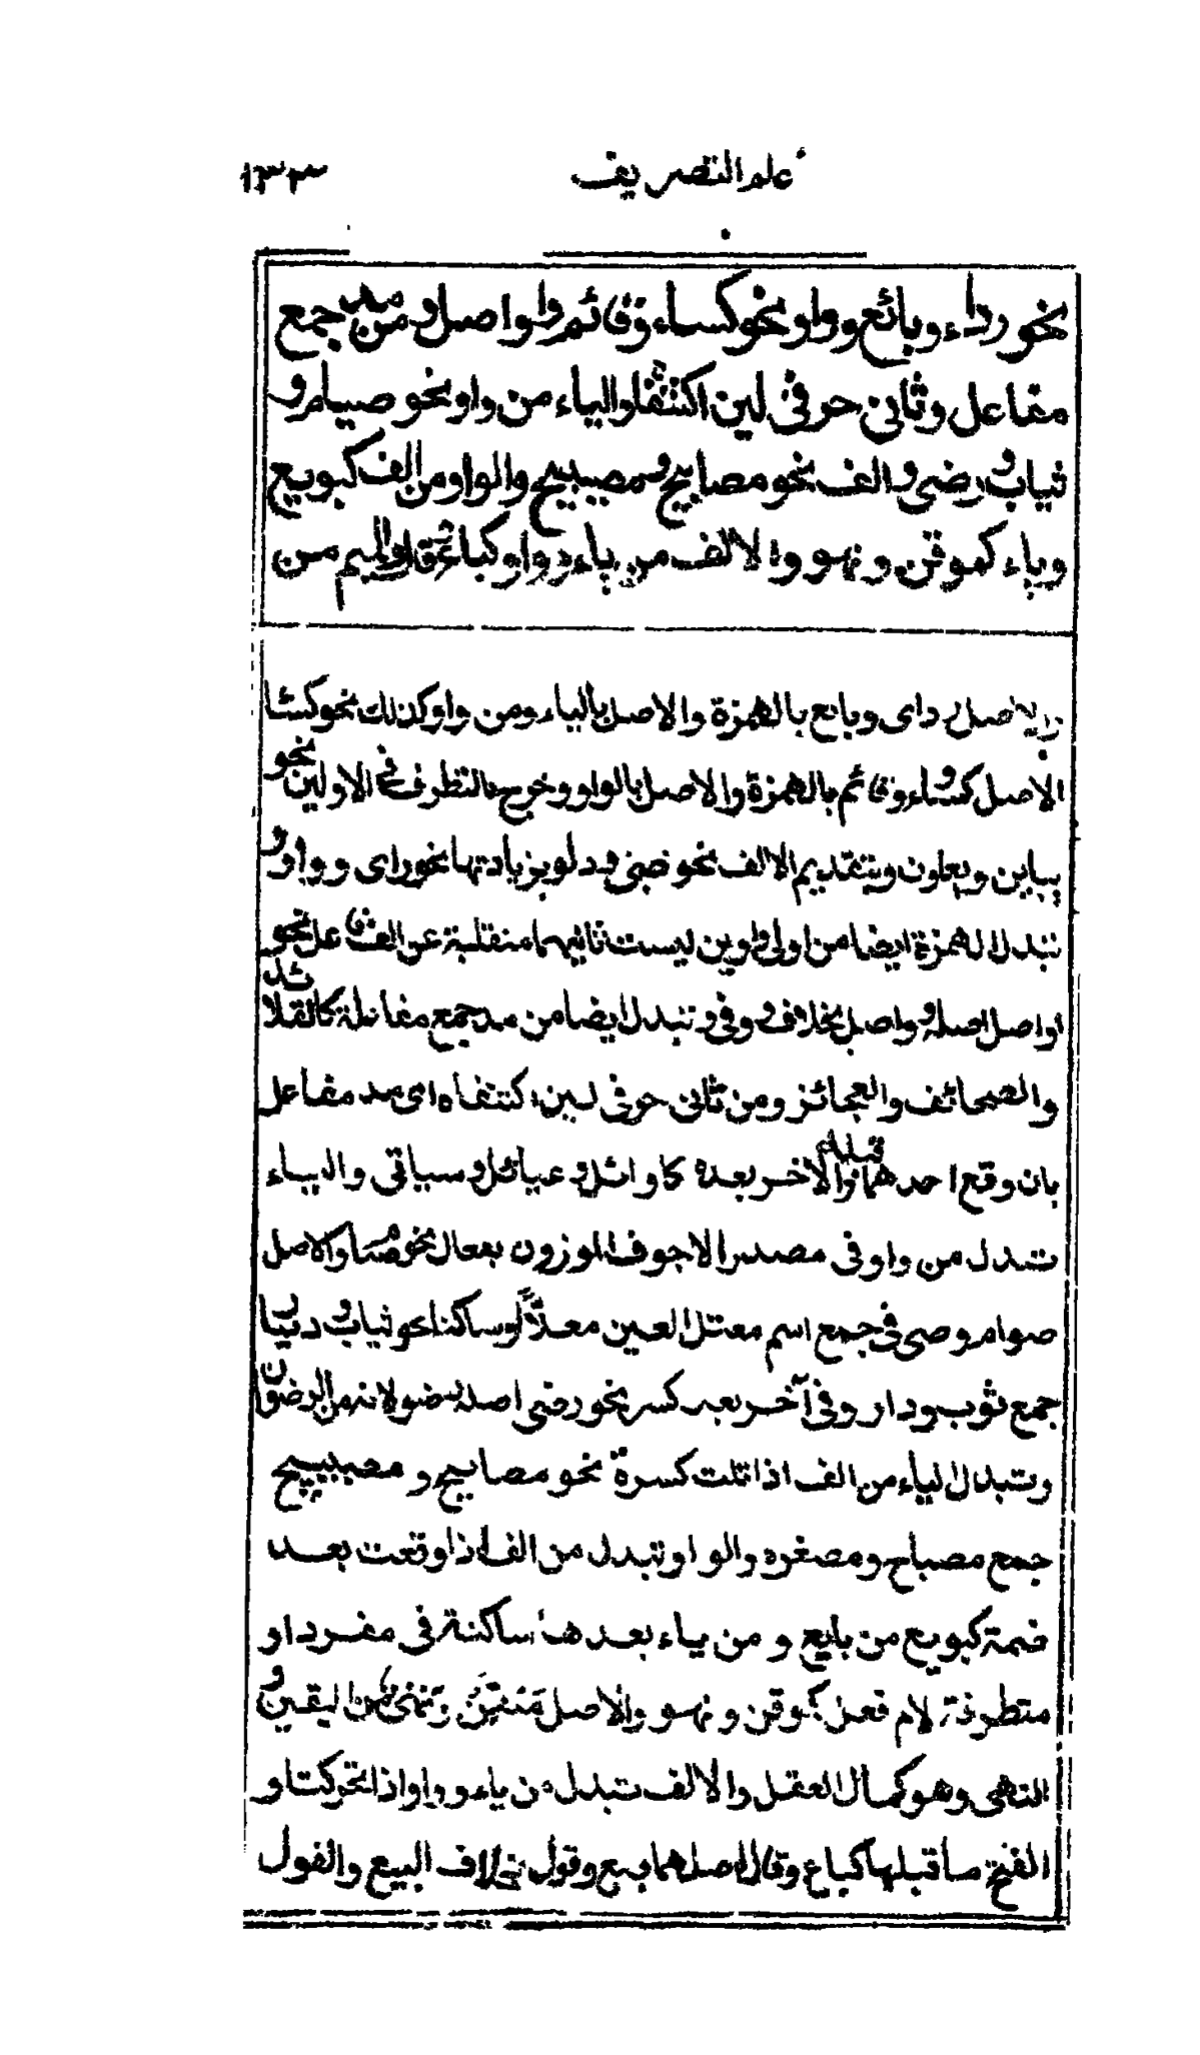 علم التصريف ١٣٣
نحو رداء و بائع و واو نحو كساء و قائم و اواصل و من مد جمع
مفاعل و ثانى حرفى لين اكتنفا والياء من واو نحو صيام و
ثياب و رضى و الف نحو مصابيح و مصيبيح والواو من الف كبويع
و ياء كموقن و نهو والالف من ياء و واو كباع و قال و الميم من
الاصل رداى و بايع بالهمزة والاصل بالياء ومن واو كذلك نحو كساء
الاصل كساو و قائم بالهمزة والاصل بالواو و خرج بالتطرف فى الاولين نحو
يباين و يعاون و بتقديم الالف نحو ضبى و دلو بزيادتها نحو راى و واو و
تبدل الهمزة ايضا من اولى واوين ليست ثانيهما منقلبة عن الف فاعل نحو
اواصل اصله وواصل بخلاف ووفى و تبدل ايضا من مد جمع مفاعلة كالقلائد
والصحائف والعجائز ومن ثانى حرفى لين اكتنفاه اى مد مفاعل
بان وقع احدهما قبله والاخر بعده كاوائل و عيائل و سياقى والياء
تبدل من واو فى مصدر الاجوف الموزون بفعال نحو صيام والاصل
صوام و صى فى جمع اسم معتل العين معلا او ساكنا نحو ثياب و ديار
جمع ثوب و دار و فى آخر بعد كسر نحو رضى اصله رضو لانه من الرضوان
وتبدل الياء من الف اذا تلت كسرة نحو مصابيح و مصيبيح
جمع مصباح و مصغره والواو تبدل من الف اذا وقعت بعد
ضمة كبويع من بايع و من ياء بعدها ساكنة فى مفرد او
متطرفة لام فعل كموقن و نهو والاصل ميقن و نهى من اليقين و
النهى وهو كمال العقل والالف تبدل من ياء و واو اذا تحركتا و
الفتح ما قبلها كباع و قال اصلهما بيع و قول بخلاف البيع والقول